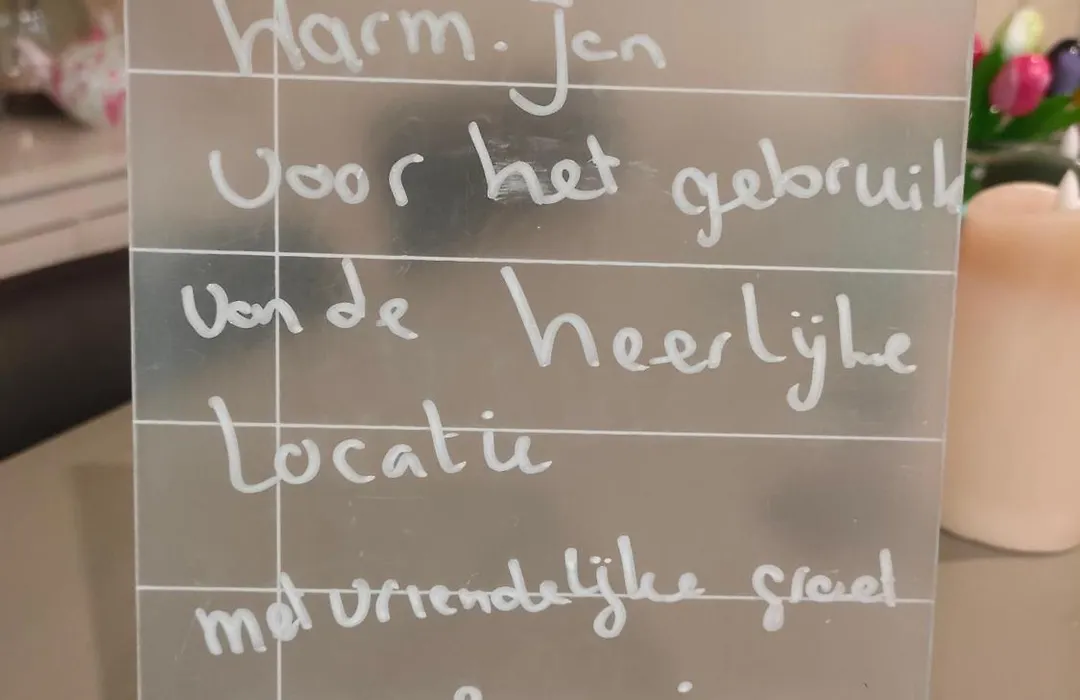 Harm. Jan
voor het gebruik
van de heerlijke
Locatie
met vriendelijke groet